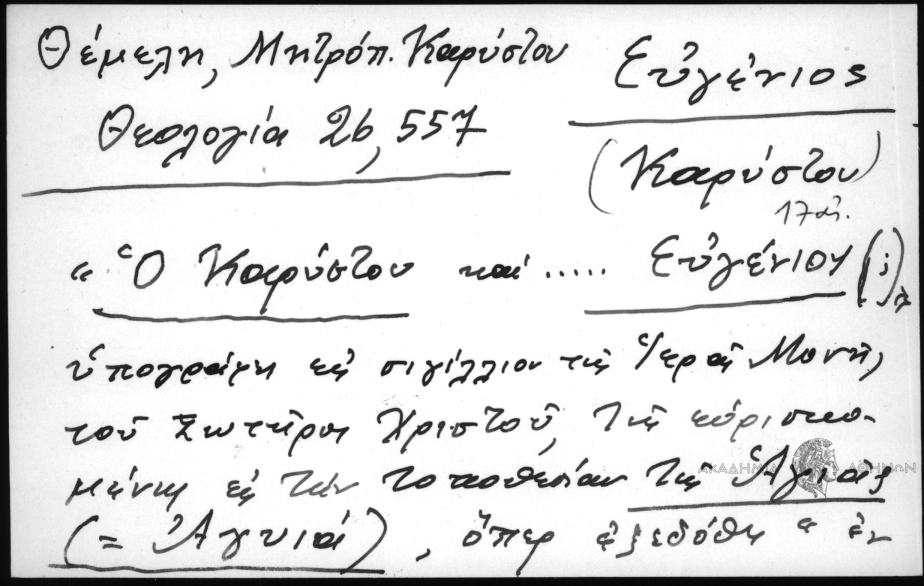 Θέμελη, Μητρόπ. Καρύστου
Θεολογία 26, 557
Εὐγένιος
(Καρύστου)
17 αἰ.
« Ὁ Καρύστου καί ..... Εὐγένιου (;)
ὑπογράφη εἰς σιγίλλιον τῆς Ἱερᾶς Μονῆς
τοῦ Σωτῆρος Χριστοῦ, τῆς εὑρισκο-
μένης εἰς τὴν τοποθεσίαν τῆς Ἁγιᾶς
ΑΚΑΔΗΜΙΑ ΑΘΗΝΩΝ
(= Ἀγυιά), ὅπερ ἐξεδόθη « ἐν